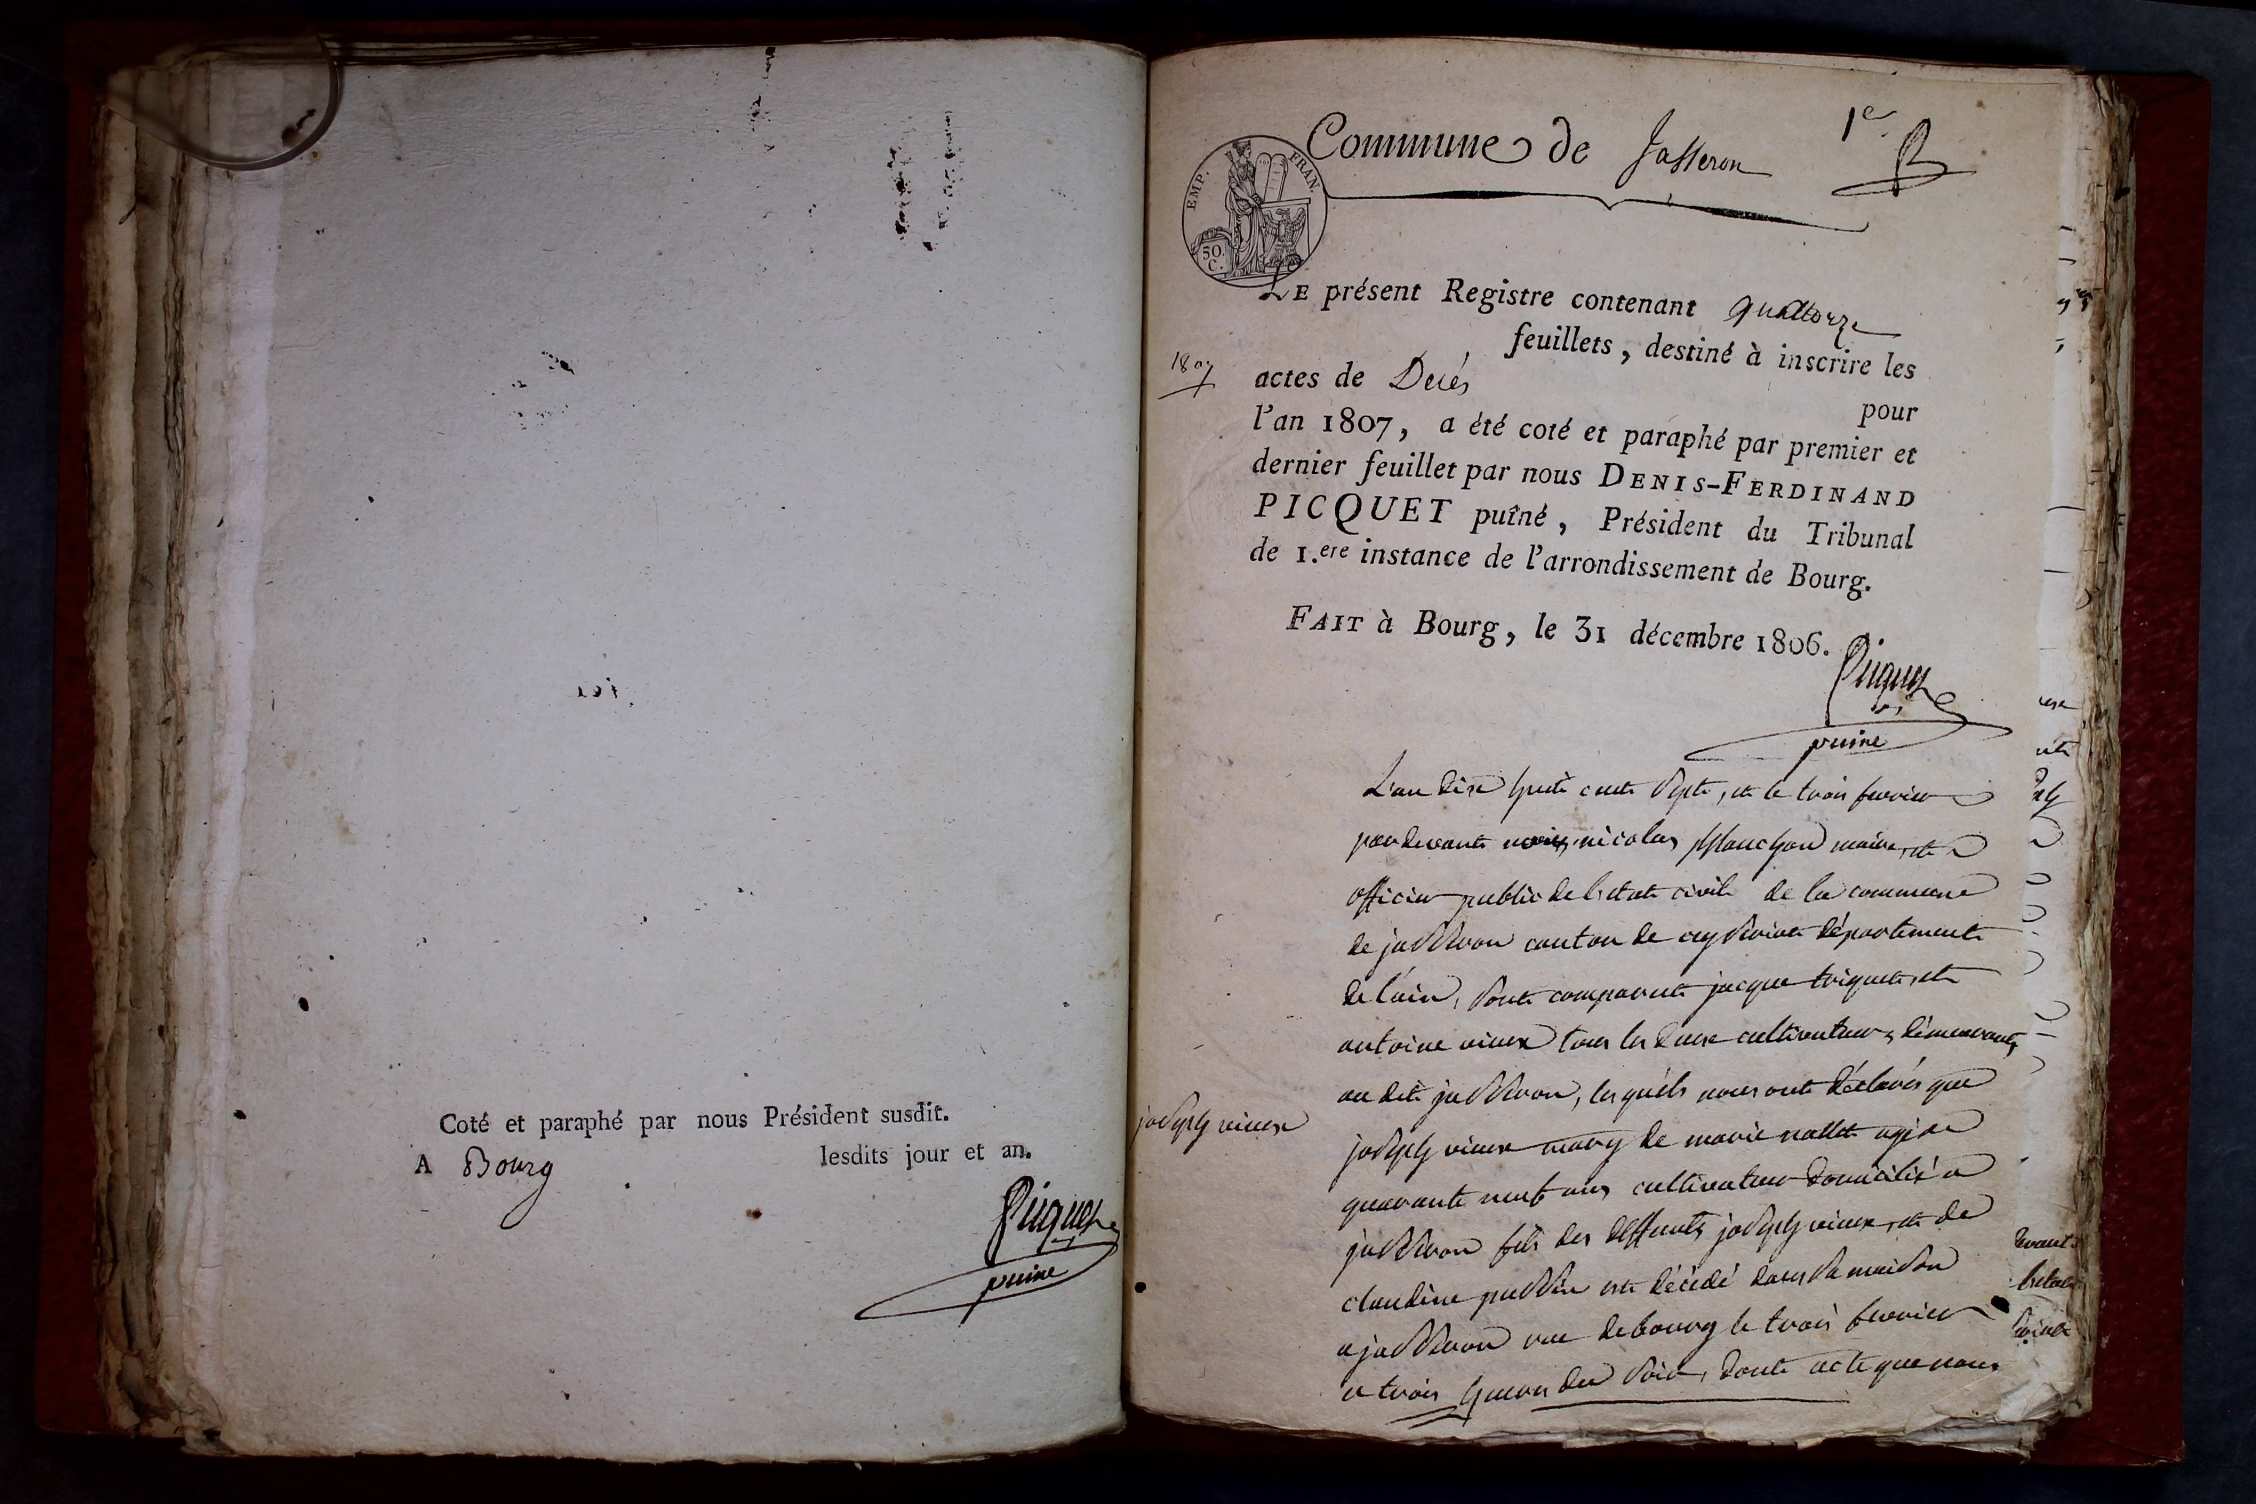 Coté et paraphé par nous Président susdit.
A Bourg lesdits jour et an.
Picquet
puine
Commune de Jasseron
1er
EMP. FRAN.
50 C.
LE présent Registre contenant quattorze
feuillets, destiné à inscrire les
1807
actes de Decés
pour
l'an 1807, a été coté et paraphé par premier et
dernier feuillet par nous DENIS-FERDINAND
PICQUET puîné, Président du Tribunal
de 1.ere instance de l'arrondissement de Bourg.
FAIT à Bourg, le 31 décembre 1806.
Picquet
puine
L'an dix huit cent sept, et le trois fevrier
pardevant nous nicolas planchon maire, et
officier public de l'état civil de la commune
de jasseron canton de ceyseriat département
de l'ain, sont comparut jacque triquet, et
antoine vieux tous les deux cultivateurs demeurants
au dit jasseron, lesquels nous ont déclarés que
joseph vieux
joseph vieux mary de marie nallet agé de
quarante neuf ans cultivateur domicilié a
jasseron fils des deffunts joseph vieux, et de
claudine est décédé dans sa maison
a jasseron rue de bourg le trois fevrier
a trois heures du soir, dont acte que nous